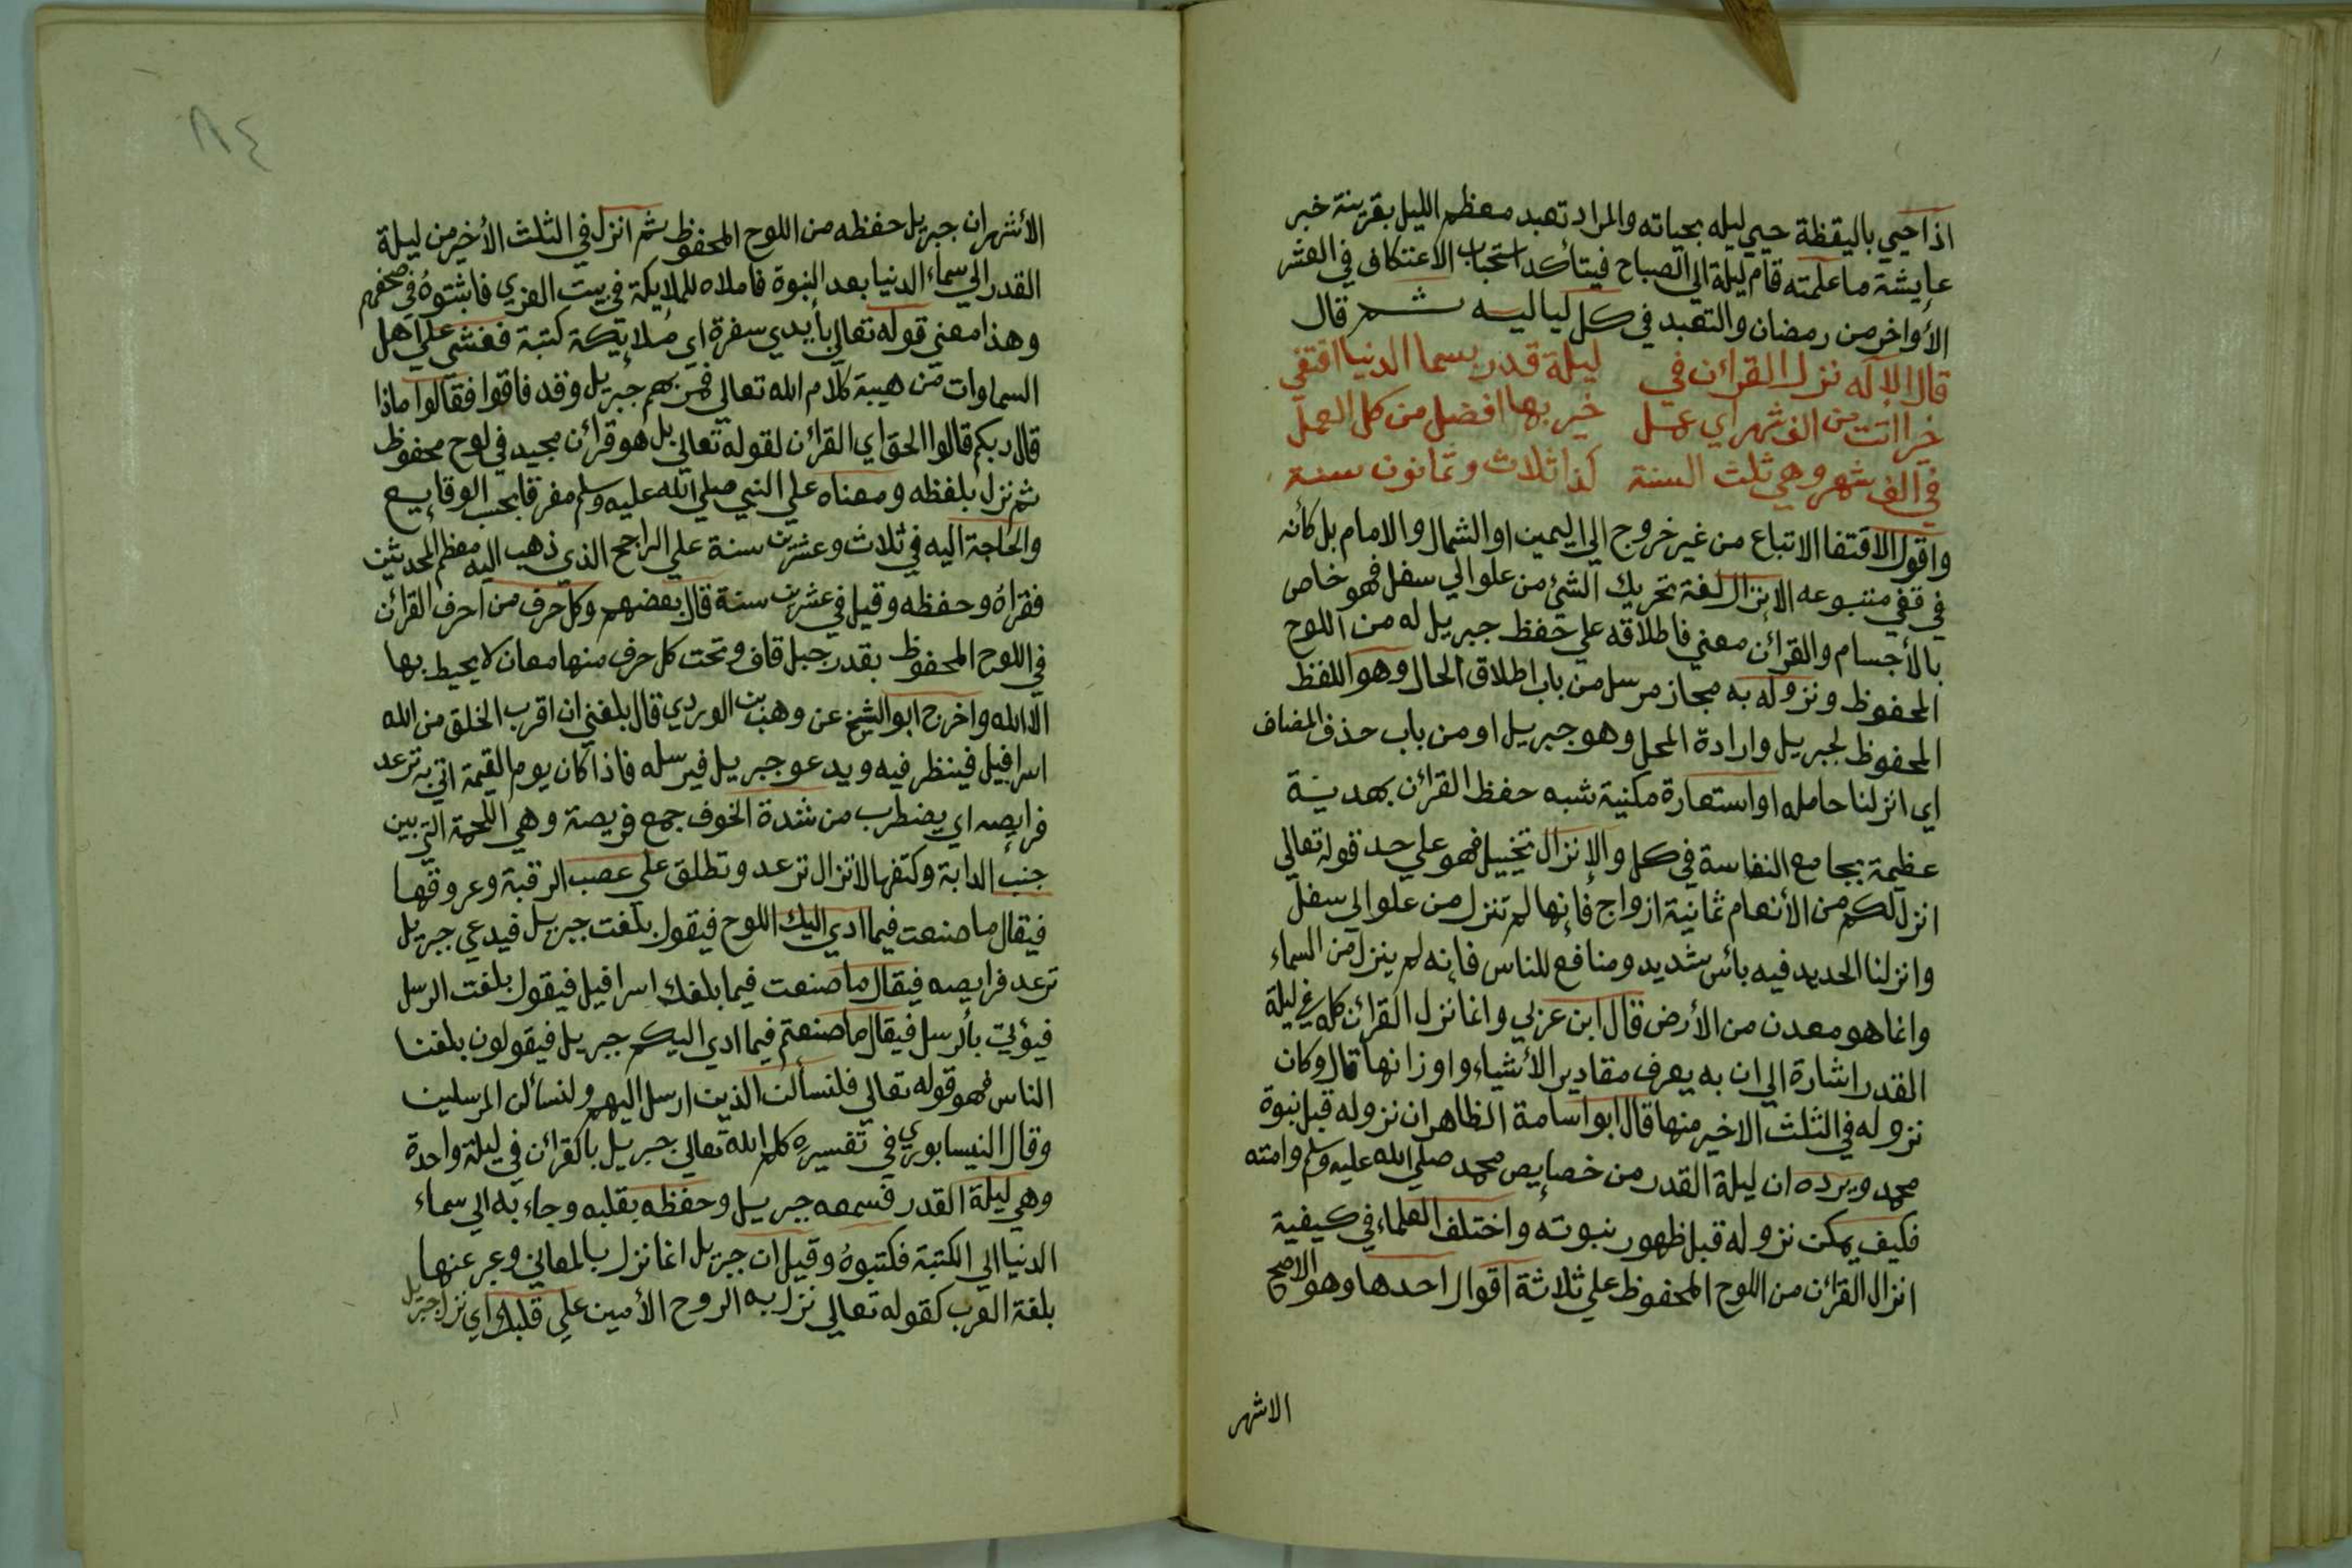 اذا حيي باليقظة حيي ليله بحياته والمراد تعبد معظم الليل بقرينة خبر
عايشة ما علمته قام ليلة الي الصباح فيتأكد استحباب الاعتكاف في العشر
الأواخر من رمضان والتعبد في كل لياليه ثم قال
قال الاله نزل القرائن في ليلة قدر بسما الدنيا اقتفي
خيرا اتت من الف شهر اي عمل خير بها افضل من كل العمل
في الف شهر وهي ثلث السنة كذا ثلاث وثمانون سنة
واقول الاقتفا الاتباع من غير خروج الي اليمين او الشمال والامام بل كأنه
في قفي متبوعه الإنزال لغة تحريك الشئ من علو الي سفل فهو خاص
بالأجسام والقرائن معني فاطلاقه علي حفظ جبريل له من اللوح
المحفوظ ونزوله به مجاز مرسل من باب اطلاق الحال وهو اللفظ
المحفوظ لجبريل وارادة المحل وهو جبريل او من باب حذف المضاف
اي انزلنا حامله او استعارة مكنية شبه حفظ القرائن بهدية
عظيمة بجامع النفاسة في كل والإنزال تخييل فهو علي حد قوله تعالي
انزل لكم من الأنعام ثمانية ازواج فإنها لم تنزل من علو الي سفل
وانزلنا الحديد فيه بأس شديد ومنافع للناس فإنه لم ينزل من السماء
وانما هو معدن من الأرض قال ابن عربي وانما نزل القرائن كله في ليلة
القدر اشارة الي ان به يعرف مقادير الأشياء واوزانها قال وكان
نزوله في الثلث الاخير منها قال ابو اسامة الظاهر ان نزوله قبل نبوة
محمد ويرده ان ليلة القدر من خصايص محمد صلي الله عليه وسلم وامته
فكيف يمكن نزوله قبل ظهور نبوته واختلف العلماء في كيفية
انزال القرائن من اللوح المحفوظ علي ثلاثة اقوال احدها وهو الاصح
الاشهر
٨٤
الأشهر ان جبريل حفظه من اللوح المحفوظ ثم انزل في الثلث الأخير من ليلة
القدر الي سماء الدنيا بعد النبوة فاملاه للملايكة في بيت العزي فاثبتوهُ في صحفهم
وهذا معني قوله تعالي بأيدي سفرة اي ملايكة كتبة فغشي علي اهل
السماوات من هيبة كلام الله تعالي فمر بهم جبريل وقد فاقوا فقالوا ماذا
قال ربكم قالوا الحق اي القرائن لقوله تعالي بل هو قرائن مجيد في لوح محفوظ
ثم نزل بلفظه ومعناه علي النبي صلي الله عليه وسلم مفرقا بحسب الوقايع
والحاجة اليه في ثلاث وعشرين سنة علي الراجح الذي ذهب اليه معظم المحدثين
فقرأهُ وحفظه وقيل في عشرين سنة قال بعضهم وكل حرف من احرف القرائن
في اللوح المحفوظ بقدر جبل قاف وتحت كل حرف منها معان لا يحيط بها
الا الله واخرج ابو الشيخ عن وهب بن الوردي قال بلغني ان اقرب الخلق من الله
اسرافيل فينظر فيه ويدعو جبريل فيرسله فاذا كان يوم القيمة اتي به ترعد
فرايصه اي يضطرب من شدة الخوف جمع فريصة وهي اللحمة التي بين
جنب الدابة وكتفها لا تزال ترعد وتطلق علي عصب الرقبة وعروقها
فيقال ما صنعت فيما ادي اليك اللوح فيقول بلغت جبريل فيدعي جبريل
ترعد فرايصه فيقال ما صنعت فيما بلغك اسرافيل فيقول بلغت الرسل
فيؤتي بالرسل فيقال ما صنعتم فيما ادي اليكم جبريل فيقولون بلغنا
الناس فهو قوله تعالي فلنسألن الذين ارسل اليهم ولنسألن المرسلين
وقال النيسابوري في تفسيره كلم الله تعالي جبريل بالقرائن في ليلة واحدة
وهي ليلة القدر فسمعه جبريل وحفظه بقلبه وجاء به الي سماء
الدنيا الي الكتبة فكتبوهُ وقيل ان جبريل انما نزل بالمعاني وعبر عنها
بلغة العرب كقوله تعالي نزل به الروح الأمين علي قلبك اي نزل جبريل